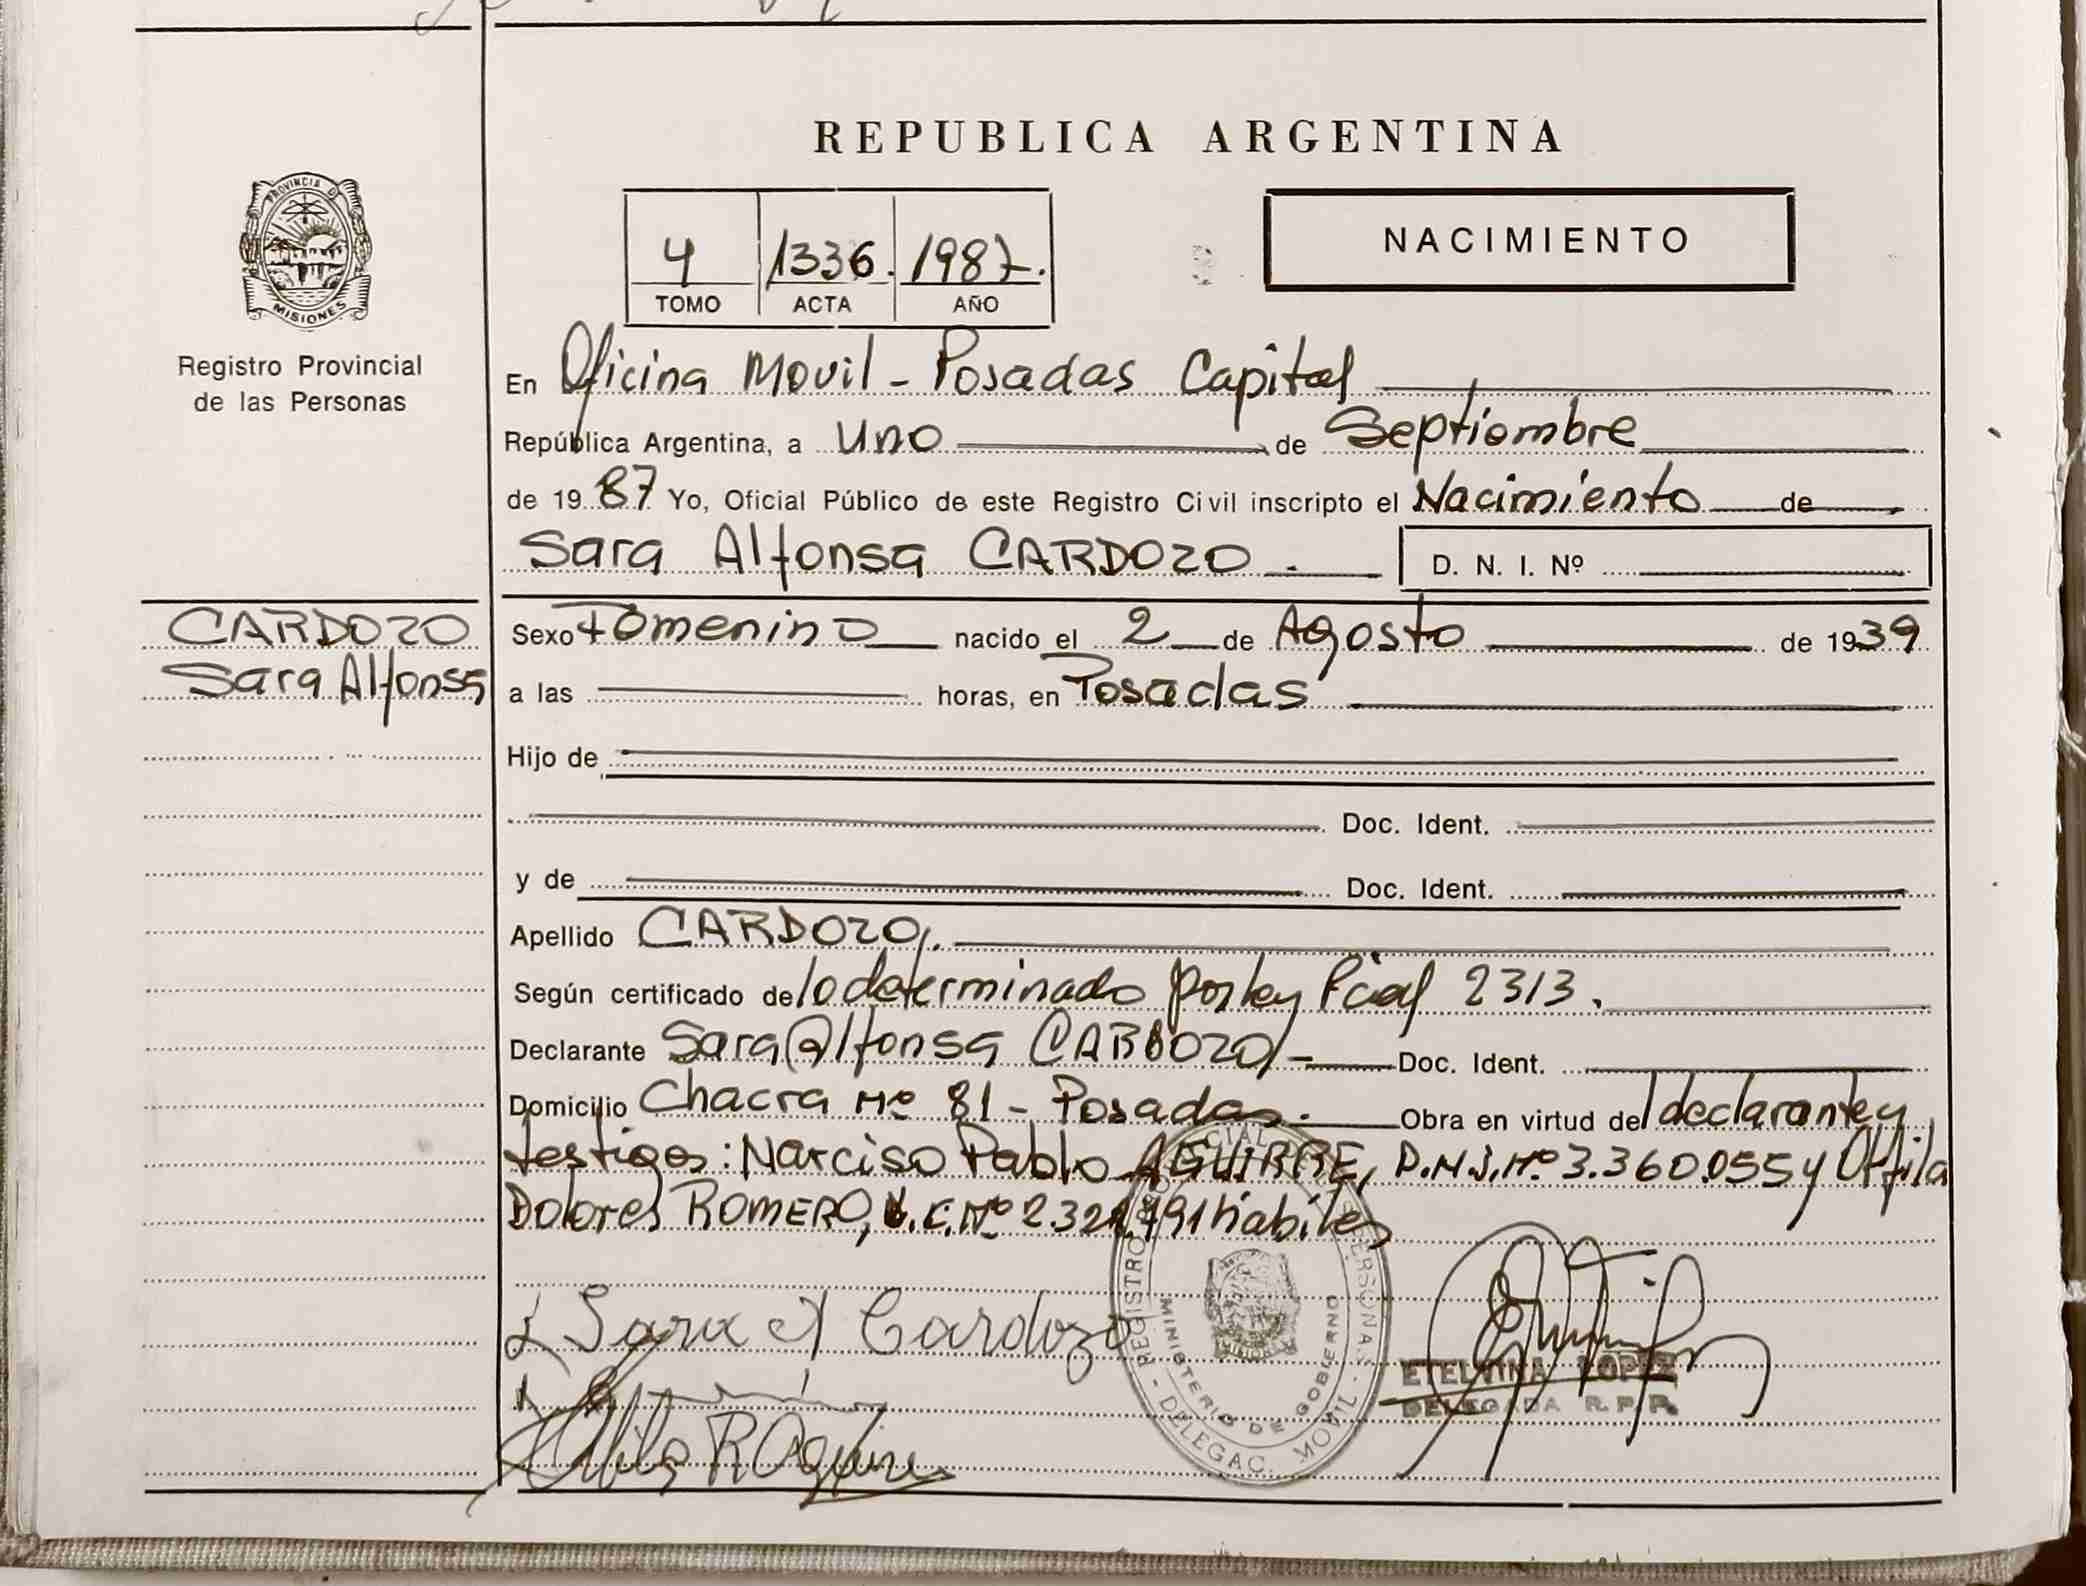 REPUBLICA ARGENTINA
PROVINCIA DE
MISIONES
Registro Provincial
de las Personas
4 1336. 1987.
TOMO ACTA AÑO
NACIMIENTO
En Oficina Movil - Posadas Capital
República Argentina, a Uno de Septiembre
de 1987 Yo, Oficial Público de este Registro Civil inscripto el Nacimiento de
Sara Alfonsa CARDOZO. D. N. I. Nº
CARDOZO
Sara Alfonsa
Sexo Femenino nacido el 2 de Agosto de 1939
a las horas, en Posadas
Hijo de
Doc. Ident.
y de Doc. Ident.
Apellido CARDOZO.
Según certificado de lo determinado por ley Pcial 2313.
Declarante Sara Alfonsa CARDOZO - Doc. Ident.
Domicilio Chacra Nº 81 - Posadas. Obra en virtud del declarante y
testigos: Narciso Pablo AGUIRRE, D.N.I. Nº 3.360.055 y
Dolores ROMERO, L.C. Nº habiles
Sara A Cardozo
REGISTRO PERSONAS
MINISTERIO DE GOBIERNO
DELEGAC. MOVIL
ETELVINA LOPEZ
DELEGADA R.P.P.